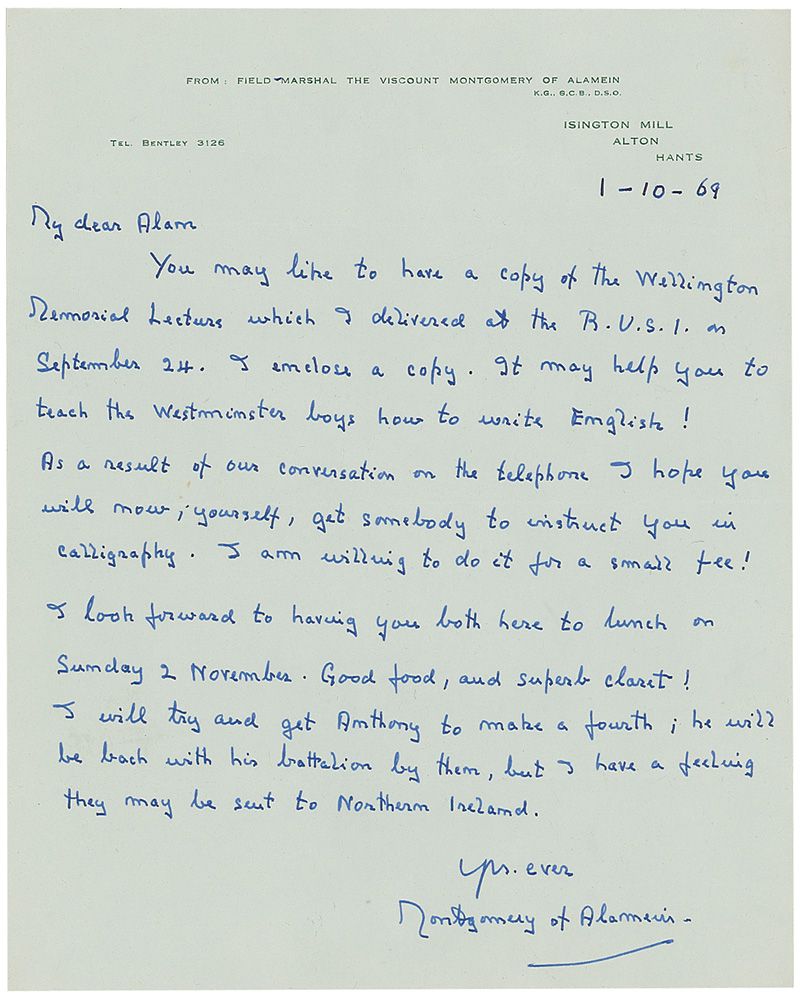 FROM: FIELD-MARSHAL THE VISCOUNT MONTGOMERY OF ALAMEIN
K.G., G.C.B., D.S.O.
ISINGTON MILL
TEL. BENTLEY 3126
ALTON
HANTS
1-10-69
My dear Alan
You may like to have a copy of the Wellington
Memorial Lecture which I delivered at the R.U.S.I. on
September 24. I enclose a copy. It may help you to
teach the Westminster boys how to write English!
As a result of our conversation on the telephone I hope you
will now, yourself, get somebody to instruct you in
calligraphy. I am willing to do it for a small fee!
I look forward to having you both here to lunch on
Sunday 2 November. Good food, and superb claret!
I will try and get Anthony to make a fourth; he will
be back with his battalion by then, but I have a feeling
they may be sent to Northern Ireland.
Yrs. ever
Montgomery of Alamein-